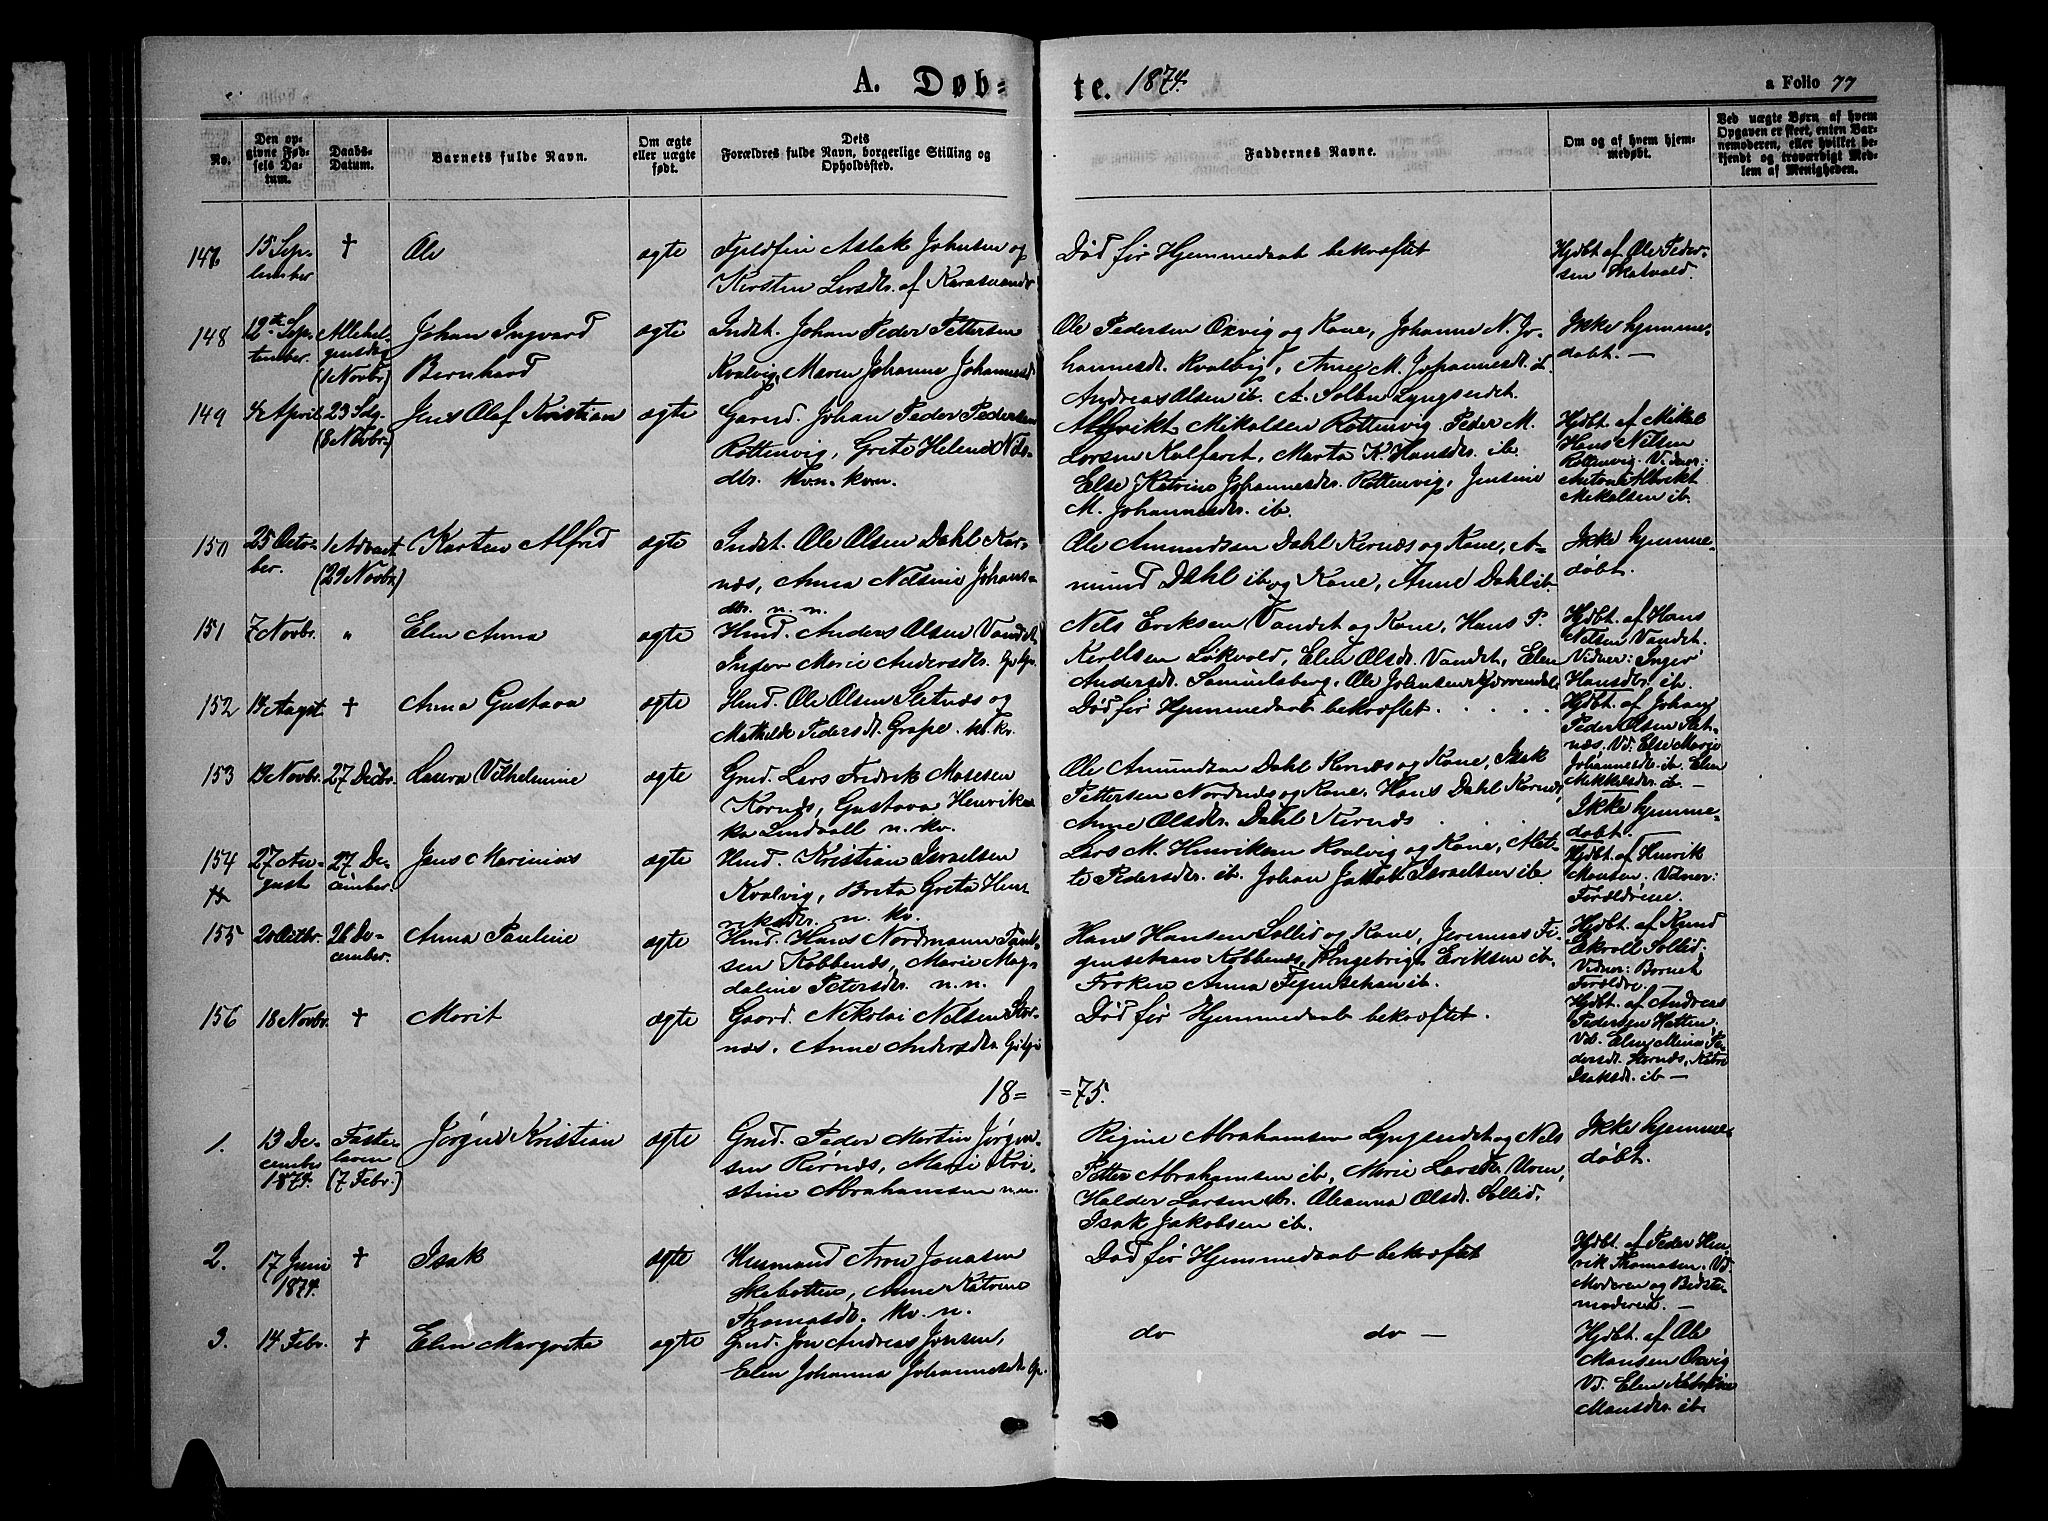 A. Døb=
te. 1874.
a Folio 77
No.
Den op-
givne Fød-
sels Da-
tum.
Daabs-
Datum.
Barnets fulde Navn.
Om ægte
eller uægte
født.
Dets
Forældres fulde Navn, borgerlige Stilling og
Opholdssted.
Faddernes Navne.
Om og af hvem hjem-
medøbt.
Ved uægte Børn af hvem
Opgaven er skeet, enten Bar-
nemoderen, eller hvilket be-
kjendt og troværdigt Med-
lem af Menigheden.
147
15 Sep-
tember
†
Ole
ægte
Fjeldfin Aslak Johnsen og
Kirsten Larsdr. af Karasuando
Død før Hjemmedaab bekræftet
Hjdbt. af Ole Peder-
sen Skatvold.
148
12te Sep-
tember.
Allehel-
gensdag
(1 Novbr.)
Johan Ingvard
Bernhard
ægte
Indst. Johan Peder Pettersen
Kvalvig, Maren Johanne Johannesd
Ole Pedersen Oxvig og Kone, Johanne N. Jo-
hannesdt. Kvalvig, Anne M. Johannesdt. ib
Andreas Olsen ib. A. Solben Lyngseidet.
Ikke hjemme-
døbt. —
149
4 April
23 Sdg.
(8 Novbr.)
Jens Olaf Kristian
ægte
Gaard. Johan Peder Pedersen
Rottenvig, Grete Helene Nils-
dtr. kvn. kvn.
Albrikt Mikalsen Rottenvig. Peder M.
Larsen Kalfaret, Marta K. Hansdr. ib.
Else Katrine Johannesdr. Rottenvig, Jensine
M. Johannesdr. ib.
Hjdbt. af Mikal
Hans Nilsen
Rottenvig. Vidner:
Anton Albrikt
Mikalsen ib.
150
25 Octo-
ber.
1 Advent
(29 Novbr)
Karsten Alfred
ægte
Indst. Ole Olsen Dahl Kor-
næs, Anna Nilsine Johans-
dtr. n. n.
Ole Amundsen Dahl Kornæs og Kone, A-
mund Dahl ib og Kone, Anne Dahl ib.
Ikke hjemme-
døbt.
151
7 Novbr.
"
Elen Anna
ægte
Husd. Anders Olsen Vandet
Inger Marie Andersdtr.
Nels Eriksen Vandet og Kone, Hans P.
Karlsen Løkvold, Elen Olsdr. Vandet, Elen
Andersdt. Samuelsberg, Ole Johnsen
Hjdbt. af Hans
Nilsen Vandet.
Vidner: Inger
Hansdtr. ib.
152
19 August
†
Anna Gustava
ægte
Husd. Ole Olsen Sletnæs og
Mathilde Pedersdt. Grape. kv. kv.
Død før Hjemmedaab bekræftet . . . . .
Hjdbt. af Johan
Peder Olsen Slet-
næs. Vd. Else Marie
Johannesdr. ib. Elen
Mikkelsdr. ib. —
153
19 Novbr.
27 Decbr.
Laura Vilhelmine
ægte
Gmd. Lars Fredrik Mosesen
Kornæs, Gustava Henrik-
ka Lindvall n. kv.
Ole Amundsen Dahl Kornæs og Kone, Isak
Pettersen Nordnæs og Kone, Hans Dahl Kornæs,
Anne Olsdr. Dahl Kornæs . . .
Ikke hjemme-
døbt.
154
27 Au-
gust
27 De-
cember.
Jens Marinius
ægte
Husd. Kristian Israelsen
Kvalvig, Brita Greta Hen-
riksdtr. n. kv.
Lars M. Henriksen Kvalvig og Kone, Met-
te Pedersdr. ib. Johan Jakob Israelsen ib.
Hjdbt. af Henrik
Monsen. Vidner:
Forældrene.
155
20 Octbr.
26 De-
cember.
Anna Pauline
ægte
Husd. Hans Nordmann
sen Kobbenæs, Marie Mag-
dalene Petersdr. n. n.
Hans Hansen Sollid og Kone, Jeremias Fi-
genschau Kobbenæs, Ingebrigt Eriksen ib.
Frøken Anna Figenschau ib.
Hjdbt. af Knud
Ekroll Sollid.
Vidner: Barnets
Forældre.
156
18 Novbr.
†
Marit
ægte
Gaard. Nikolai Nilsen Stor-
næs, Anne Andersdtr.
Død før Hjemmedaab bekræftet.
Hjdbt. af Andreas
Pedersen Hatten.
Vd. Elen Maria Pe-
dersdt. Stornæs, Katri
Isaksdr. ib —
18=
=75.
1.
13 De-
cember
1874.
Faste-
laven
(7 Febr.)
Jørgen Kristian
ægte
Gmd. Peder Martin Jørgen-
sen Rørnæs, Marie Kri-
stine Abrahamsen n.n.
Regine Abrahamsen Lyngseidet og Nels
Petter Abrahamsen ib, Marie Larsdr. Uren,
Haldor Larsen ib. Oleanna Olsdr. Sollid,
Isak Jakobsen ib.
Ikke hjemme-
døbt.
2.
17 Juni
1874.
†
Isak
ægte
Husmand Aron Jonasen
Skibotten, Anne Katrine
Thomasdr. kv. n.
Død før Hjemmedaab bekræftet
Hjdbt. af Peder Hen-
rik Thomasen. Vd
Moderen og Bedste-
moderen. —
3.
14 Febr.
†
Elen Margreta
ægte
Gmd. Jon Andreas Jonsen,
Elen Johanna Johannesdr.
do do —
Hjdbt. af Ole
Monsen Oxvig
Vd. Elen Katrine
Monsdr. ib.